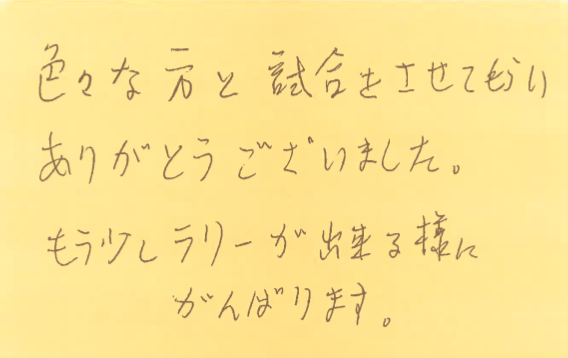 色々な方と試合をさせてもらい
ありがとうございました。
もう少しラリーが出来る様に
がんばります。